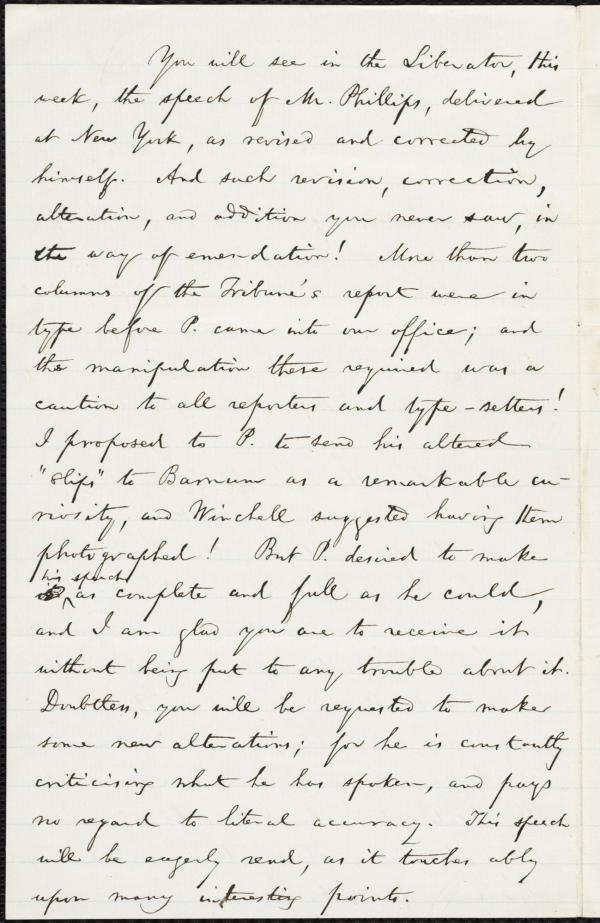 You will see in the Liberator, this
week, the speech of Mr. Phillips, delivered
at New York, as revised and corrected by
himself. And such revision, correction,
alteration, and addition you never saw, in
the way of emendation! More than two
columns of the Tribune's report were in
type before P. came into our office; and
the manipulation these required was a
caution to all reporters and type-setters!
I proposed to P. to send his altered
"slips" to Barnum as a remarkable cu-
riosity, and Winchell suggested having them
photographed! But P. desired to make
his speech
as complete and full as he could,
and I am glad you are to receive it
without being put to any trouble about it.
Doubtless, you will be requested to make
some new alterations; for he is constantly
criticising what he has spoken, and pays
no regard to literal accuracy. This speech
will be eagerly read, as it touches ably
upon many interesting points.